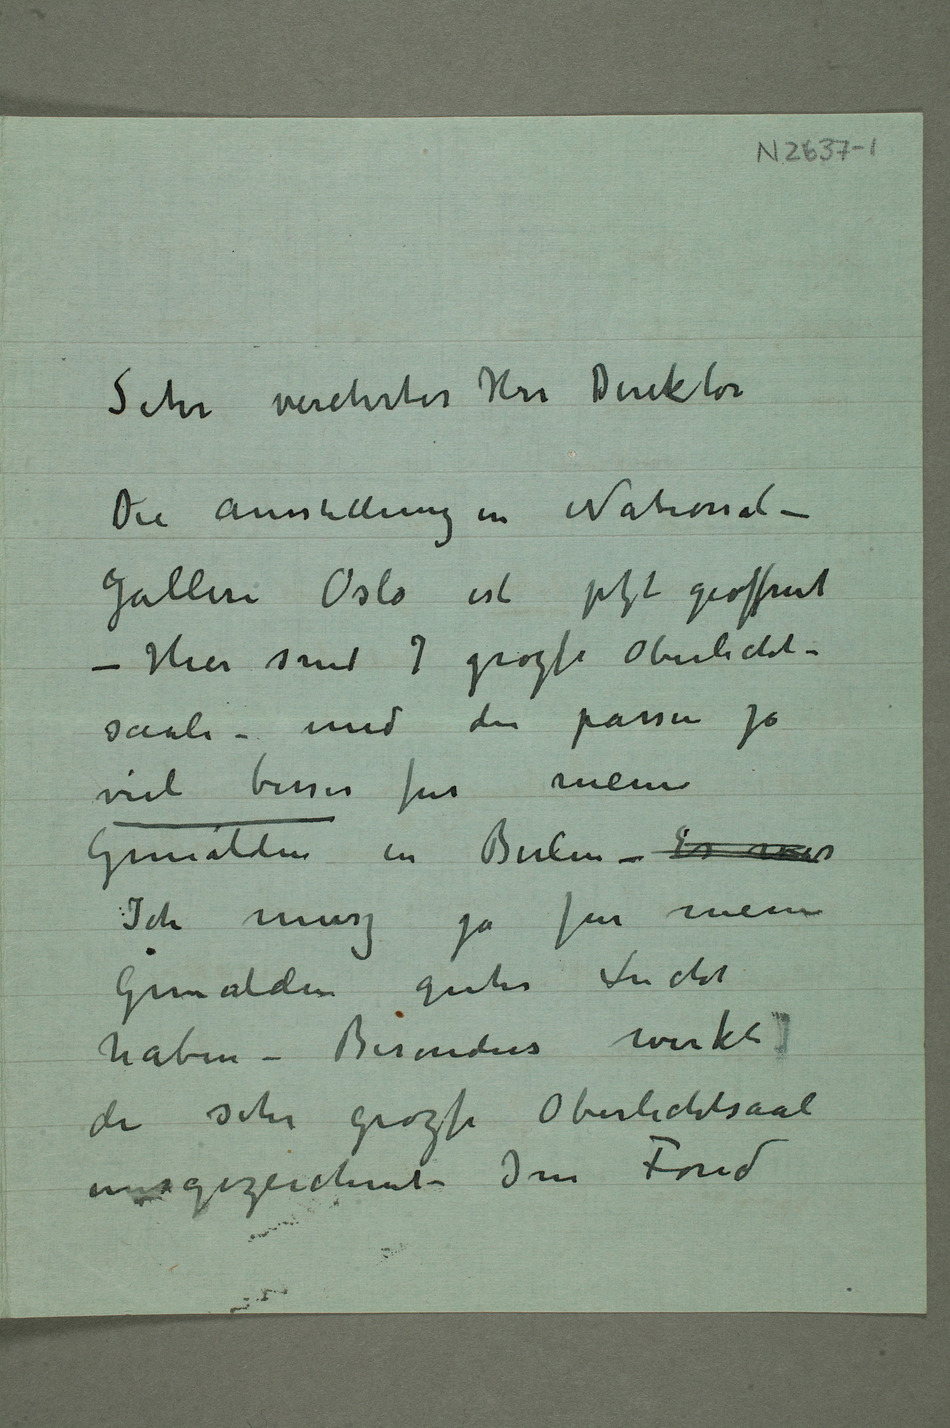 N2637-1
Sehr verehrter Herr Direktor
Die Ausstellung in National–
Gallerie Oslo ist jetzt geöffnet
– Hier sind 7 grozse Oberlicht-
saale – und die passen ja
viel besser fur meine
Gemälden in Berlin – Es war
Ich musz ja fur meine
Gemalden gutes Licht
haben – Besonders wirkt
der sehr grozse Oberlichtsaal
ausgezeichnet – Im Fond